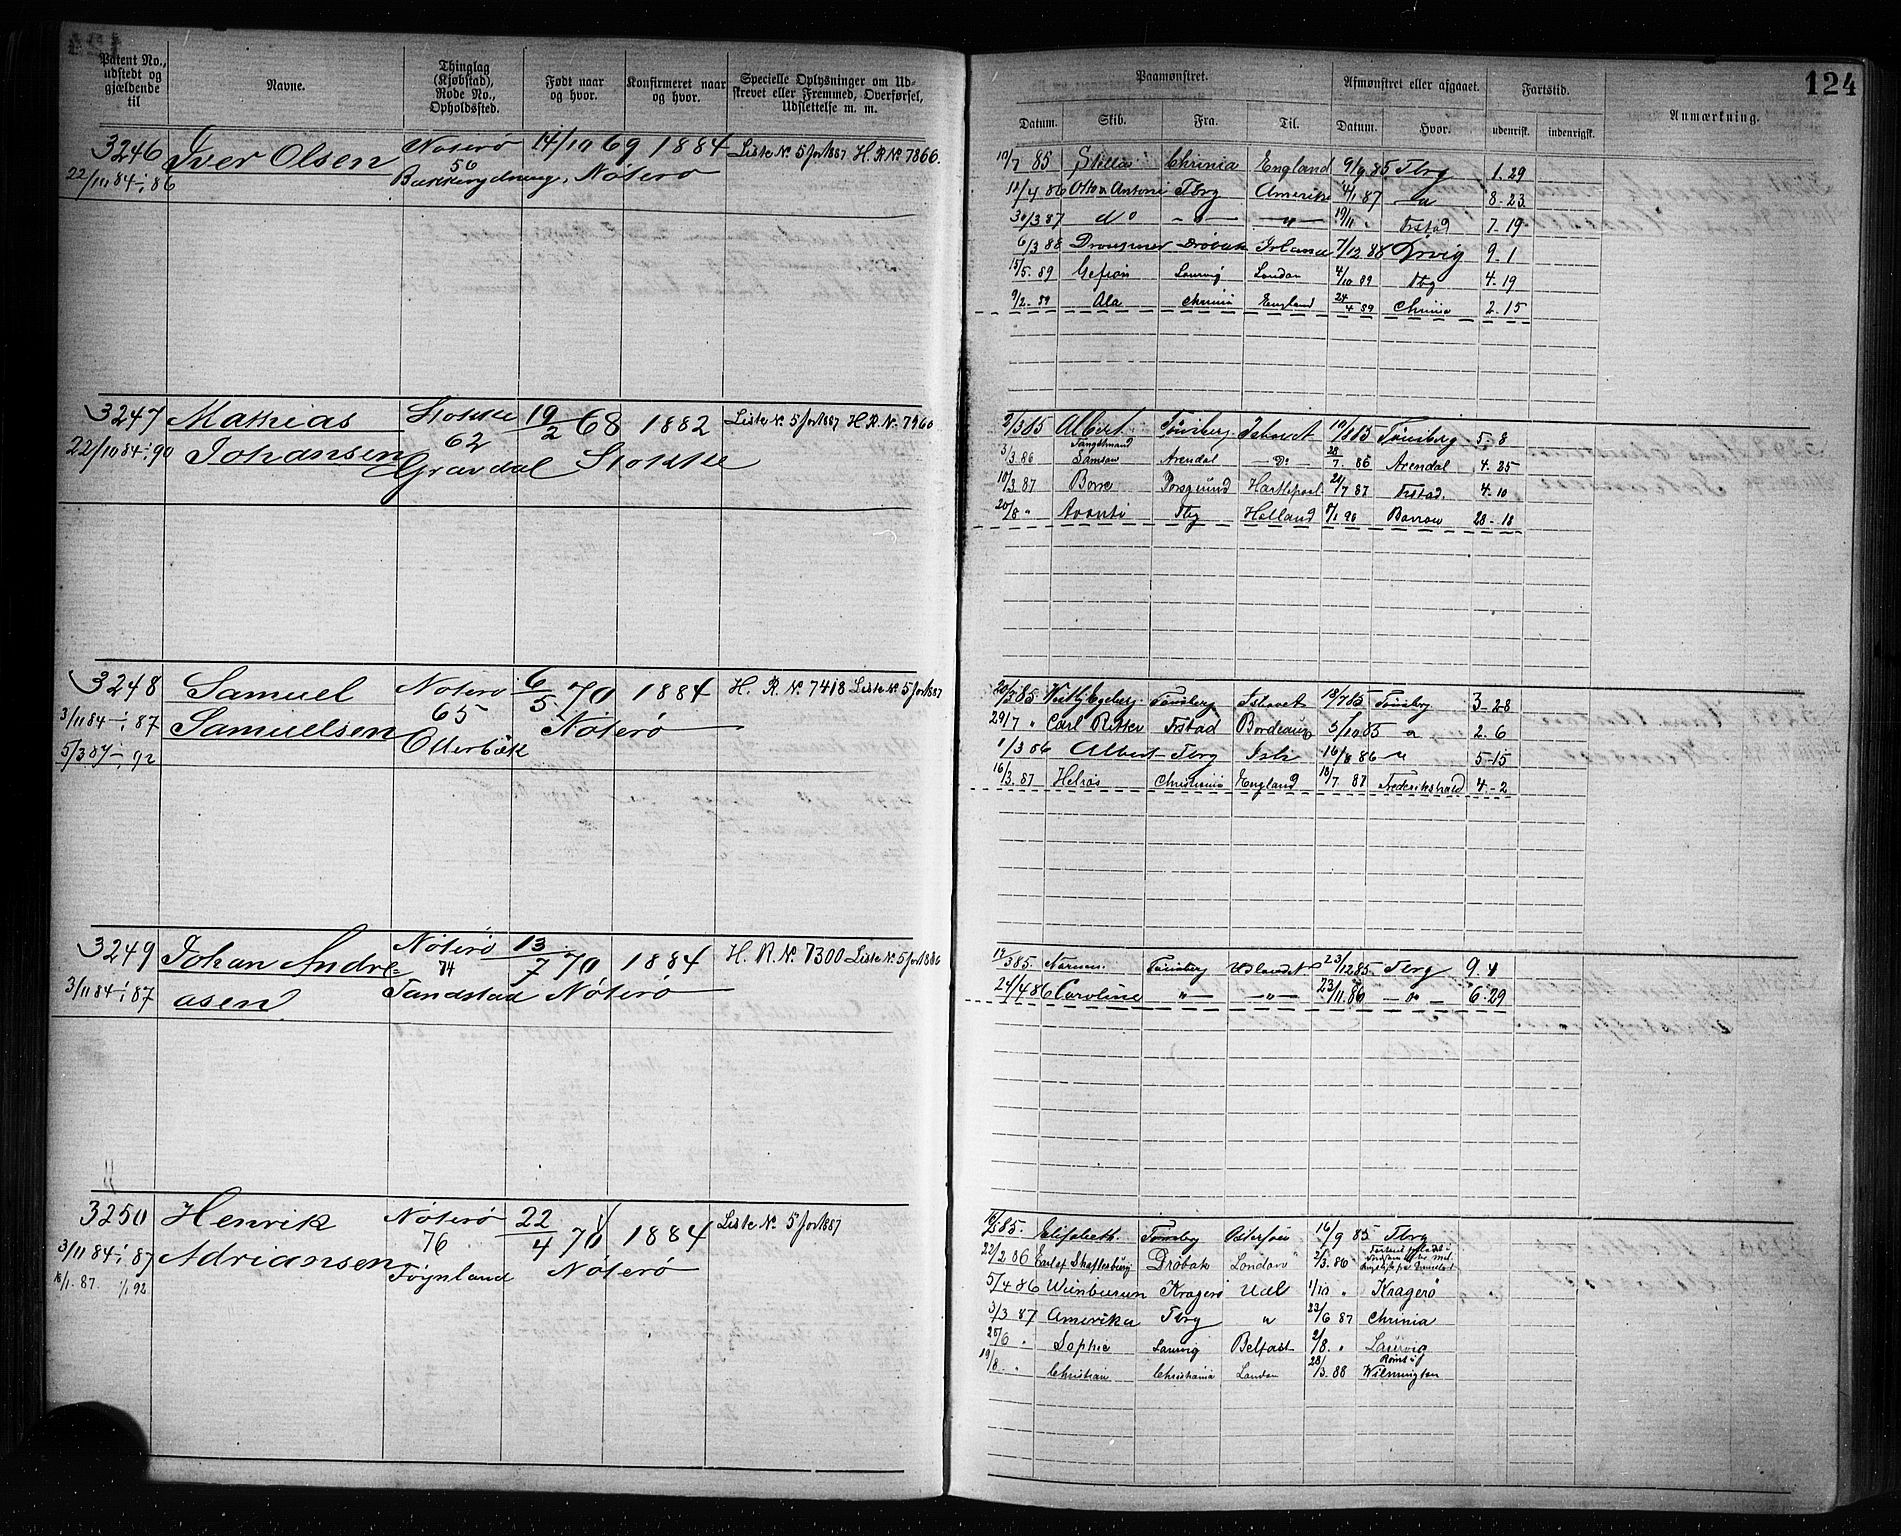 124
Patent No., udstedt og gjældende til
Navne.
Thinglag (Kjøbstad), Rode No., Opholdssted.
Født naar og hvor.
Konfirmeret naar og hvor.
Specielle Oplysninger om Udskrevet eller Fremmed, Overførsel, Udslettelse m. m.
Paamønstret.
Afmønstret eller afgaaet.
Fartstid.
Anmærkning.
Datum. Skib. Fra. Til. Datum. Hvor. udenrigs. indenrigs.
3246 Iver Olsen Nøterø 14/10 69 1884 Liste No. 5 for 1887 H. R. No. 7866.
22/11 84 ÷ 86 56 Nøterø
10/7 85 Stella Chrinia England 9/9 85 Tbrg 1.29
12/4 86 Otto & Antonie Tbrg Amerika 4/1 87 8-23
30/3 87 Do 19/11 Frstad 7.19
6/3 88 Draupner Drøbak Irland 7/12 88 Drvig 9.1
15/5. 89 Gefion Laurvig London 4/10 89 Tbg 4-19
9/2. 89 Ala Chrinia England 24/4 89 Chrinia 2.15
3247 Mathias Stokke 19/2 68 1882 Liste No. 5 for 1887 H. R. No. 7960
22/10 84 ÷ 90 Johansen 62 Gravdal Stokke
2/3 85 Albert Tønsberg Ishavet 10/8 85 Tønsberg 5-8
3/3. 86 Fangstmand Samson Arendal Do 28/7. 86 Arendal 4.25
10/3. 87 Borre Porsgrund Hartlepool 21/7 87 Frstad. 4-10
20/8 " Avanti Tbg Holland 8/1 90 Barrow 28-18
3248 Samuel Nøterø 6/5 70 1884 H. R. No. 7418 Liste No. 5 for 1887
3/11 84 ÷ 87 Samuelsen 65 Nøterø
5/3 87 ÷ 92 Otterbæk
20/3 85. Tønsberg Ishavet 18/7 85 Tønsberg 3-28
29/7 " Carl Ritter Frstad Bordeaux 5/10 85 " 2.6
1/3 86 Albert Tbrg Ish 16/8 86 " 5-15
16/3. 87 Helios Christiania England 18/7 87 Frederikshald 4-2
3249 Johan Andre- Nøterø 13/7 70 1884 H. R. No. 7300 Liste No. 5 for 1886
3/11 84 ÷ 87 asen 74 Nøterø
14/3 85. Tønsberg Udlandet 23/12 85. Tbrg 9.1
24/4 86 Caroline " " 23/11. 86 " 6-29
3250 Henrik Nøterø 22/4 70 1884 Liste No. 5 for 1887
3/11 84 ÷ 87 Adriansen 76 Nøterø
18/1. 87. 1/1 92 Føynland
Elisabeth. Tønsbg Østersøen 16/9 85 Tbrg
22/2 86 Earl of Shaftesbury Drøbak London 2/3. 86
5/4 86 Kragerø Udl 1/10 " Kragerø
3/3 87 Amerika Tbrg " 22/6 87 Chrinia
25/6 " Sophie Laurvig Belfast 2/8. " Laurvig
19/8. " Christian Christiania London 28/3. 88 Wilmington